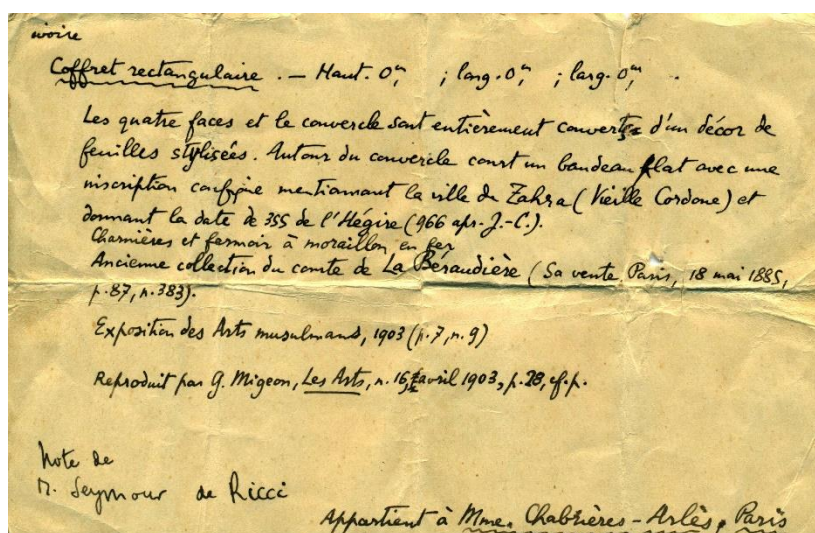 ivoire
Coffret rectangulaire. — Haut. 0m, ; long. 0m, ; larg. 0m, .
Les quatre faces et le couvercle sont entièrement couvertes d'un décor de
feuilles stylisées. Autour du couvercle court un bandeau plat avec une
inscription coufique mentionnant la ville de Zahra (Vieille Cordoue) et
donnant la date de 355 de l'Hégire (966 apr. J.-C.).
Charnières et fermoir à moraillon en fer
Ancienne collection du comte de La Béraudière (Sa vente, Paris, 18 mai 1885,
p. 87, n. 383).
Exposition des Arts musulmans, 1903 (p. 7, n. 9)
Reproduit par G. Migeon, Les Arts, n. 16, avril 1903, p. 28, cf. p.
Note de
M. Seymour de Ricci
Appartient à Mme. Chabrières-Arlès, Paris